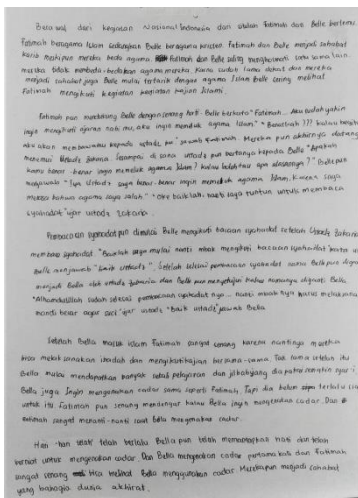 Berawal dari kegiatan Nasional Indonesia dan itulah Fatimah dan Belle bertemu
Fatimah beragama Islam sedangkan Belle beragama kristen Fatimah dan Belle menjadi sahabat
karib meskipun mereka beda agama. Fatimah dan Belle saling menghormati satu sama lain.
mereka tidak membeda-bedakan agama mereka. Karna sudah lama dekat dan mereka
menjadi sahabat juga Belle mulai tertarik dengan agama Islam Belle sering melihat
Fatimah mengikuti kegiatan kajian Islami.
Fatimah pun mendukung Belle dengan senang hati. Belle berkata "Fatimah... aku sudah yakin
ingin mengikuti ajaran nabi mu, aku ingin memeluk agama Islam," "Benarkah??? kalau begitu
aku akan membawamu kepada ustadz ku" jawab Fatimah. Mereka pun akhirnya datang
menemui Ustadz Zakaria. Sesampai di sana ustadz pun bertanya kepada Belle "Apakah
kamu benar-benar ingin memeluk agama Islam? kalau boleh tau apa alasannya?" Belle pun
menjawab "Iya Ustadz saya benar-benar ingin memeluk agama Islam, karena saya
merasa bahwa agama saya salah." "Oke baiklah nanti saya tuntun untuk membaca
syahadat" ujar ustadz Zakaria.
Pembacaan syahadat pun dimulai Belle mengikuti bacaan syahadat setelah Ustadz Zakaria
membaca syahadat. "Baiklah saya mulai nanti mbak mengikuti bacaan syahadat
Belle menjawab "baik ustadz". Setelah selesai pembacaan syahadat nama Belle pun diganti
menjadi Bella oleh ustadz Zakaria dan Belle pun menyetujui bahwa namanya diganti Bella
"Alhamdulillah sudah selesai pembacaan syahadat nya... nanti mbak nya harus melakukan
mandi besar agar suci" ujar ustadz "Baik ustadz" jawab Bella
Setelah Bella masuk Islam Fatimah sangat senang karena nantinya mereka
bisa melaksanakan ibadah dan mengikuti kajian bersama-sama. Tak lama setelah itu
Bella mulai mendapatkan banyak sekali pelajaran dan jilbabnya
Bella juga ingin mengenakan cadar sama seperti Fatimah. Tapi dia belum siap terlalu
untuk itu Fatimah pun senang mendengar kalau Bella ingin mengenakan cadar. Dan
Fatimah sangat menanti-nanti saat Bella mengenakan cadar.
Hari-hari telah berlalu Bella pun telah memantapkan hati dan telah
berniat untuk mengenakan cadar. Dan Bella mengenakan cadar pertama kali dan Fatimah
sangat senang bisa melihat Bella menggunakan cadar Merekapun menjadi sahabat
yang bahagia dunia akhirat.